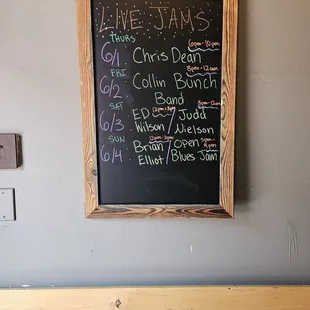 LIVE JAMS
THURS
6/1 Chris Dean 6pm-10pm
FRI 8pm-12am
6/2 Collin Bunch
Band
SAT 12pm-4pm 8pm-12am
6/3 ED / Judd
Wilson / Nielson
SUN 12pm-3pm
6/4 Brian / Open 5pm-9pm
Elliot / Blues Jam